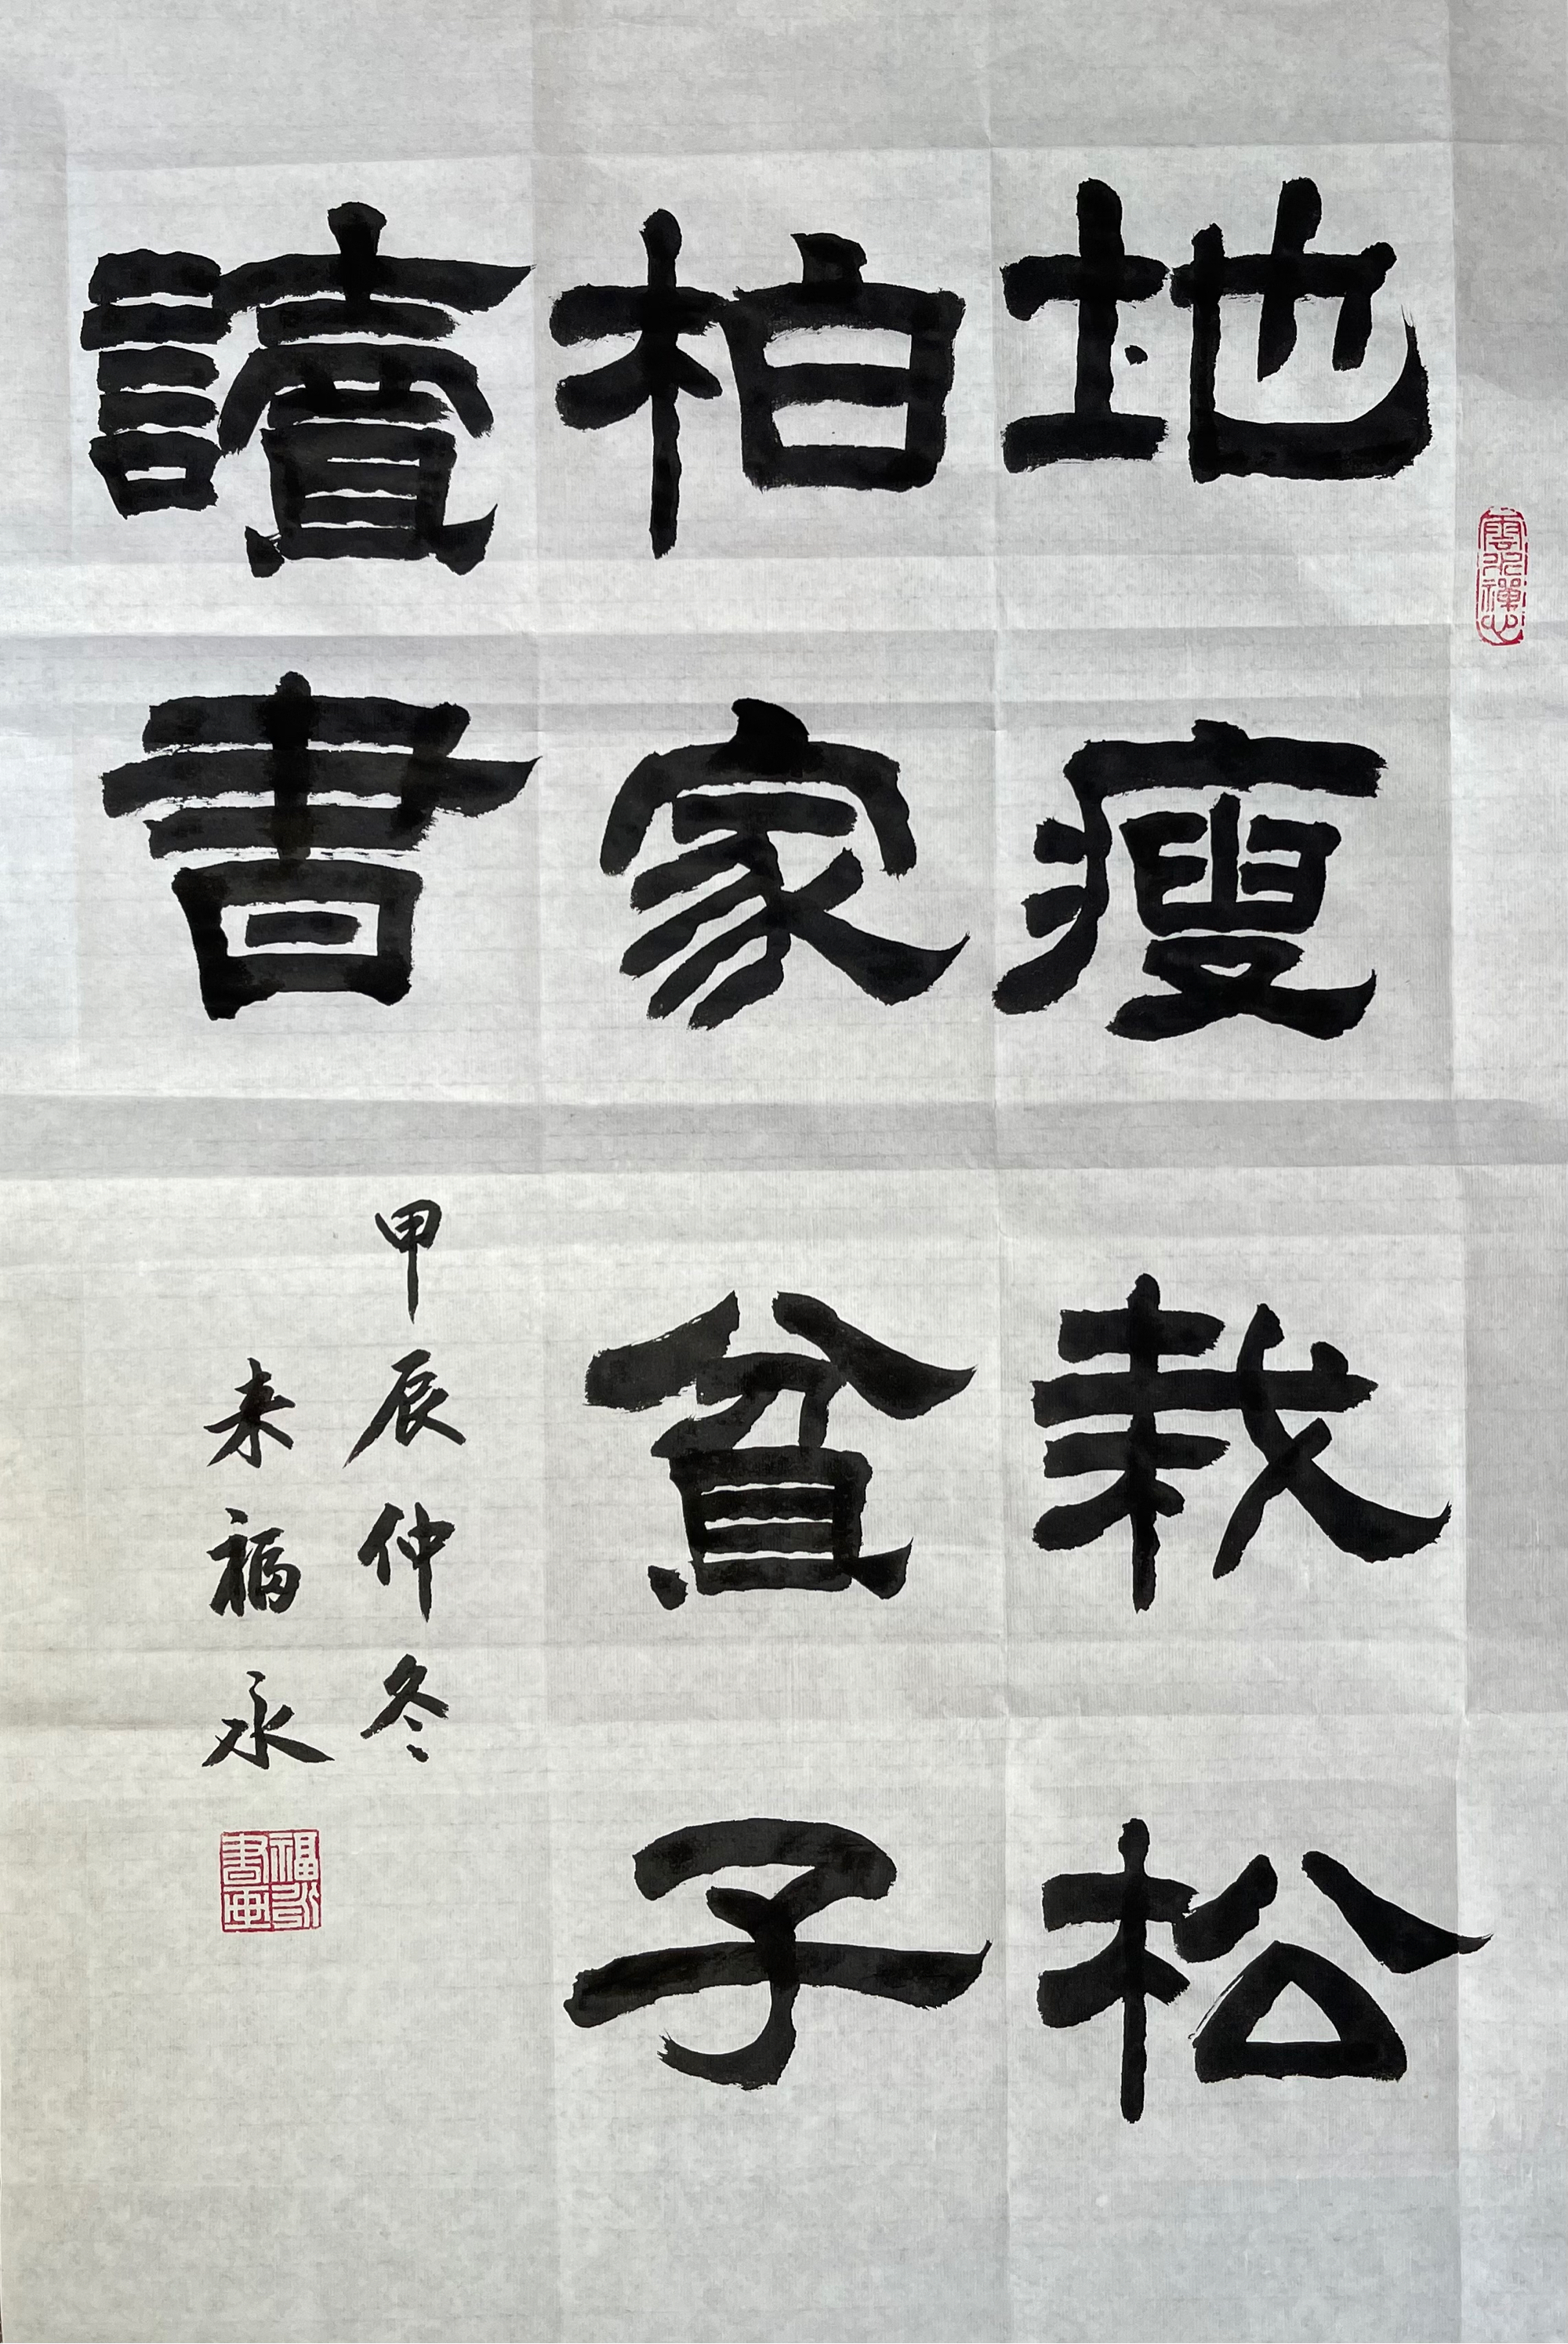 地瘦栽松
柏家貧子
讀書
甲辰仲冬
来福永
福永書画